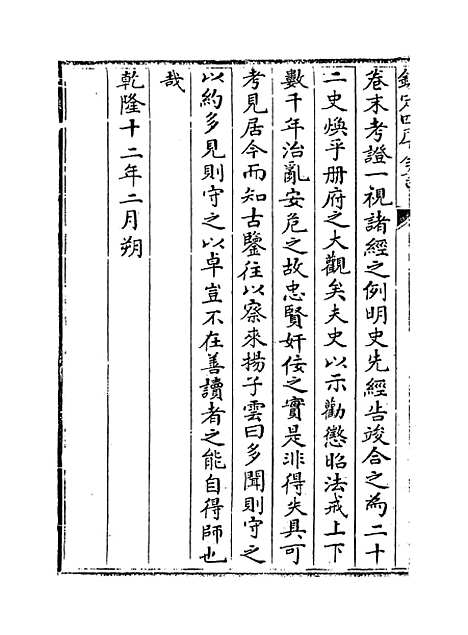 欽定四庫全書
卷末考證一視諸經之例明史先經告竣合之為二十
二史煥乎冊府之大觀矣夫史以示勸懲昭法戒上下
數千年治亂安危之故忠賢奸佞之實是非得失具可
考見居今而知古鑒往以察來揚子雲曰多聞則守之
以約多見則守之以卓豈不在善讀者之能自得師也
哉
乾隆十二年二月朔